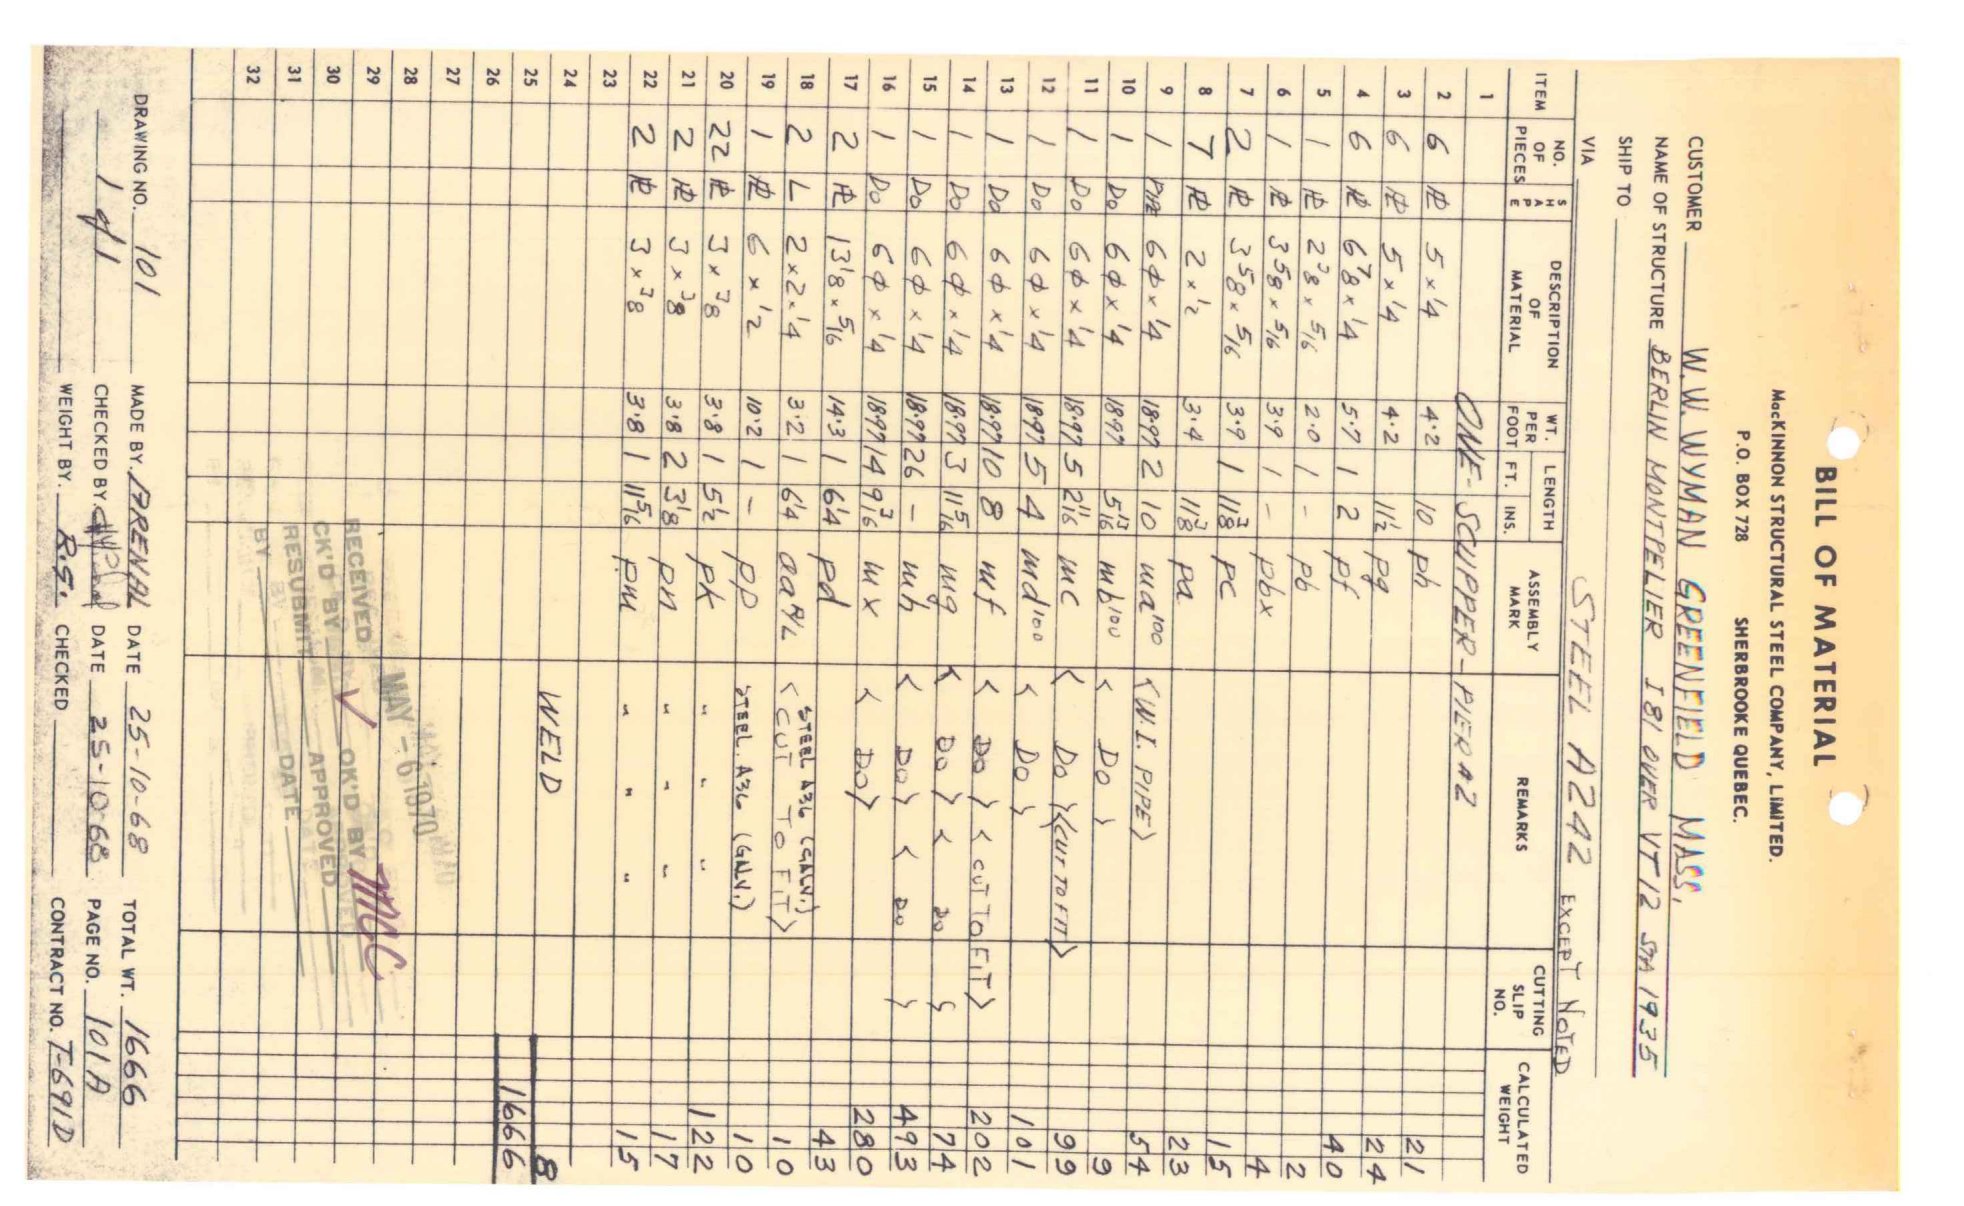 BILL OF MATERIAL
MacKINNON STRUCTURAL STEEL COMPANY, LIMITED.
P.O. BOX 728 SHERBROOKE QUEBEC.
CUSTOMER W.W. WYMAN GREENFIELD MASS.
NAME OF STRUCTURE BERLIN MONTPELIER I 81 OVER VT12 STA 1935
SHIP TO
VIA STEEL A242 EXCEPT NOTED
ITEM NO. OF PIECES SHAPE DESCRIPTION OF MATERIAL WT. PER FOOT LENGTH FT. INS. ASSEMBLY MARK REMARKS CUTTING SLIP NO. CALCULATED WEIGHT
1 ONE-SCUPPER-PIER #2
2 6 PL 5 x 1/4 4.2 10 ph 21
3 6 PL 5 x 1/4 4.2 11 1/2 pg 24
4 6 PL 6 7/8 x 1/4 5.7 1 2 pf 40
5 1 PL 2 3/8 x 5/16 2.0 1 - pb 2
6 1 PL 3 5/8 x 5/16 3.9 1 - pbx 4
7 2 PL 3 5/8 x 5/16 3.9 1 11 3/8 pc 15
8 7 PL 2 x 1/2 3.4 11 3/8 pa 23
9 1 PIPE 6 Ø x 1/4 18.97 2 10 ma100 <W.I. PIPE> 54
10 1 Do 6 Ø x 1/4 18.97 5 13/16 mb100 < Do > 9
11 1 Do 6 Ø x 1/4 18.97 5 2 11/16 mc < Do > <CUT TO FIT> 99
12 1 Do 6 Ø x 1/4 18.97 5 4 md100 < Do > 101
13 1 Do 6 Ø x 1/4 18.97 10 8 mf < Do > <CUT TO FIT> 202
14 1 Do 6 Ø x 1/4 18.97 3 11 5/16 mg < Do > < Do > 74
15 1 Do 6 Ø x 1/4 18.97 26 - mh < Do > < Do > 493
16 1 Do 6 Ø x 1/4 18.97 14 9 3/16 mx < Do > 280
17 2 PL 13 1/8 x 5/16 14.3 1 6 1/4 pd 43
18 2 L 2 x 2 x 1/4 3.2 1 6 1/4 aa R/L STEEL A36 (GALV.) < CUT TO FIT > 10
19 1 PL 6 x 1/2 10.2 1 - pp STEEL A36 (GALV.) 10
20 22 PL 3 x 3/8 3.8 1 5 1/2 pk " " " 122
21 2 PL 3 x 3/8 3.8 2 3 1/8 pn " " " 17
22 2 PL 3 x 3/8 3.8 1 11 5/16 pm " " " 15
23
24 WELD 8
25 1666
26
27
28
29
30
31
32
MAY - 6 1970
RECEIVED
CK'D BY OK'D BY MAC
RESUBMIT APPROVED
BY DATE
DRAWING NO. 101 MADE BY. ARENAL DATE 25-10-68 TOTAL WT. 1666
1 of 1 CHECKED BY. DATE 25-10-68 PAGE NO. 101A
WEIGHT BY. R.S. CHECKED CONTRACT NO. T-691D